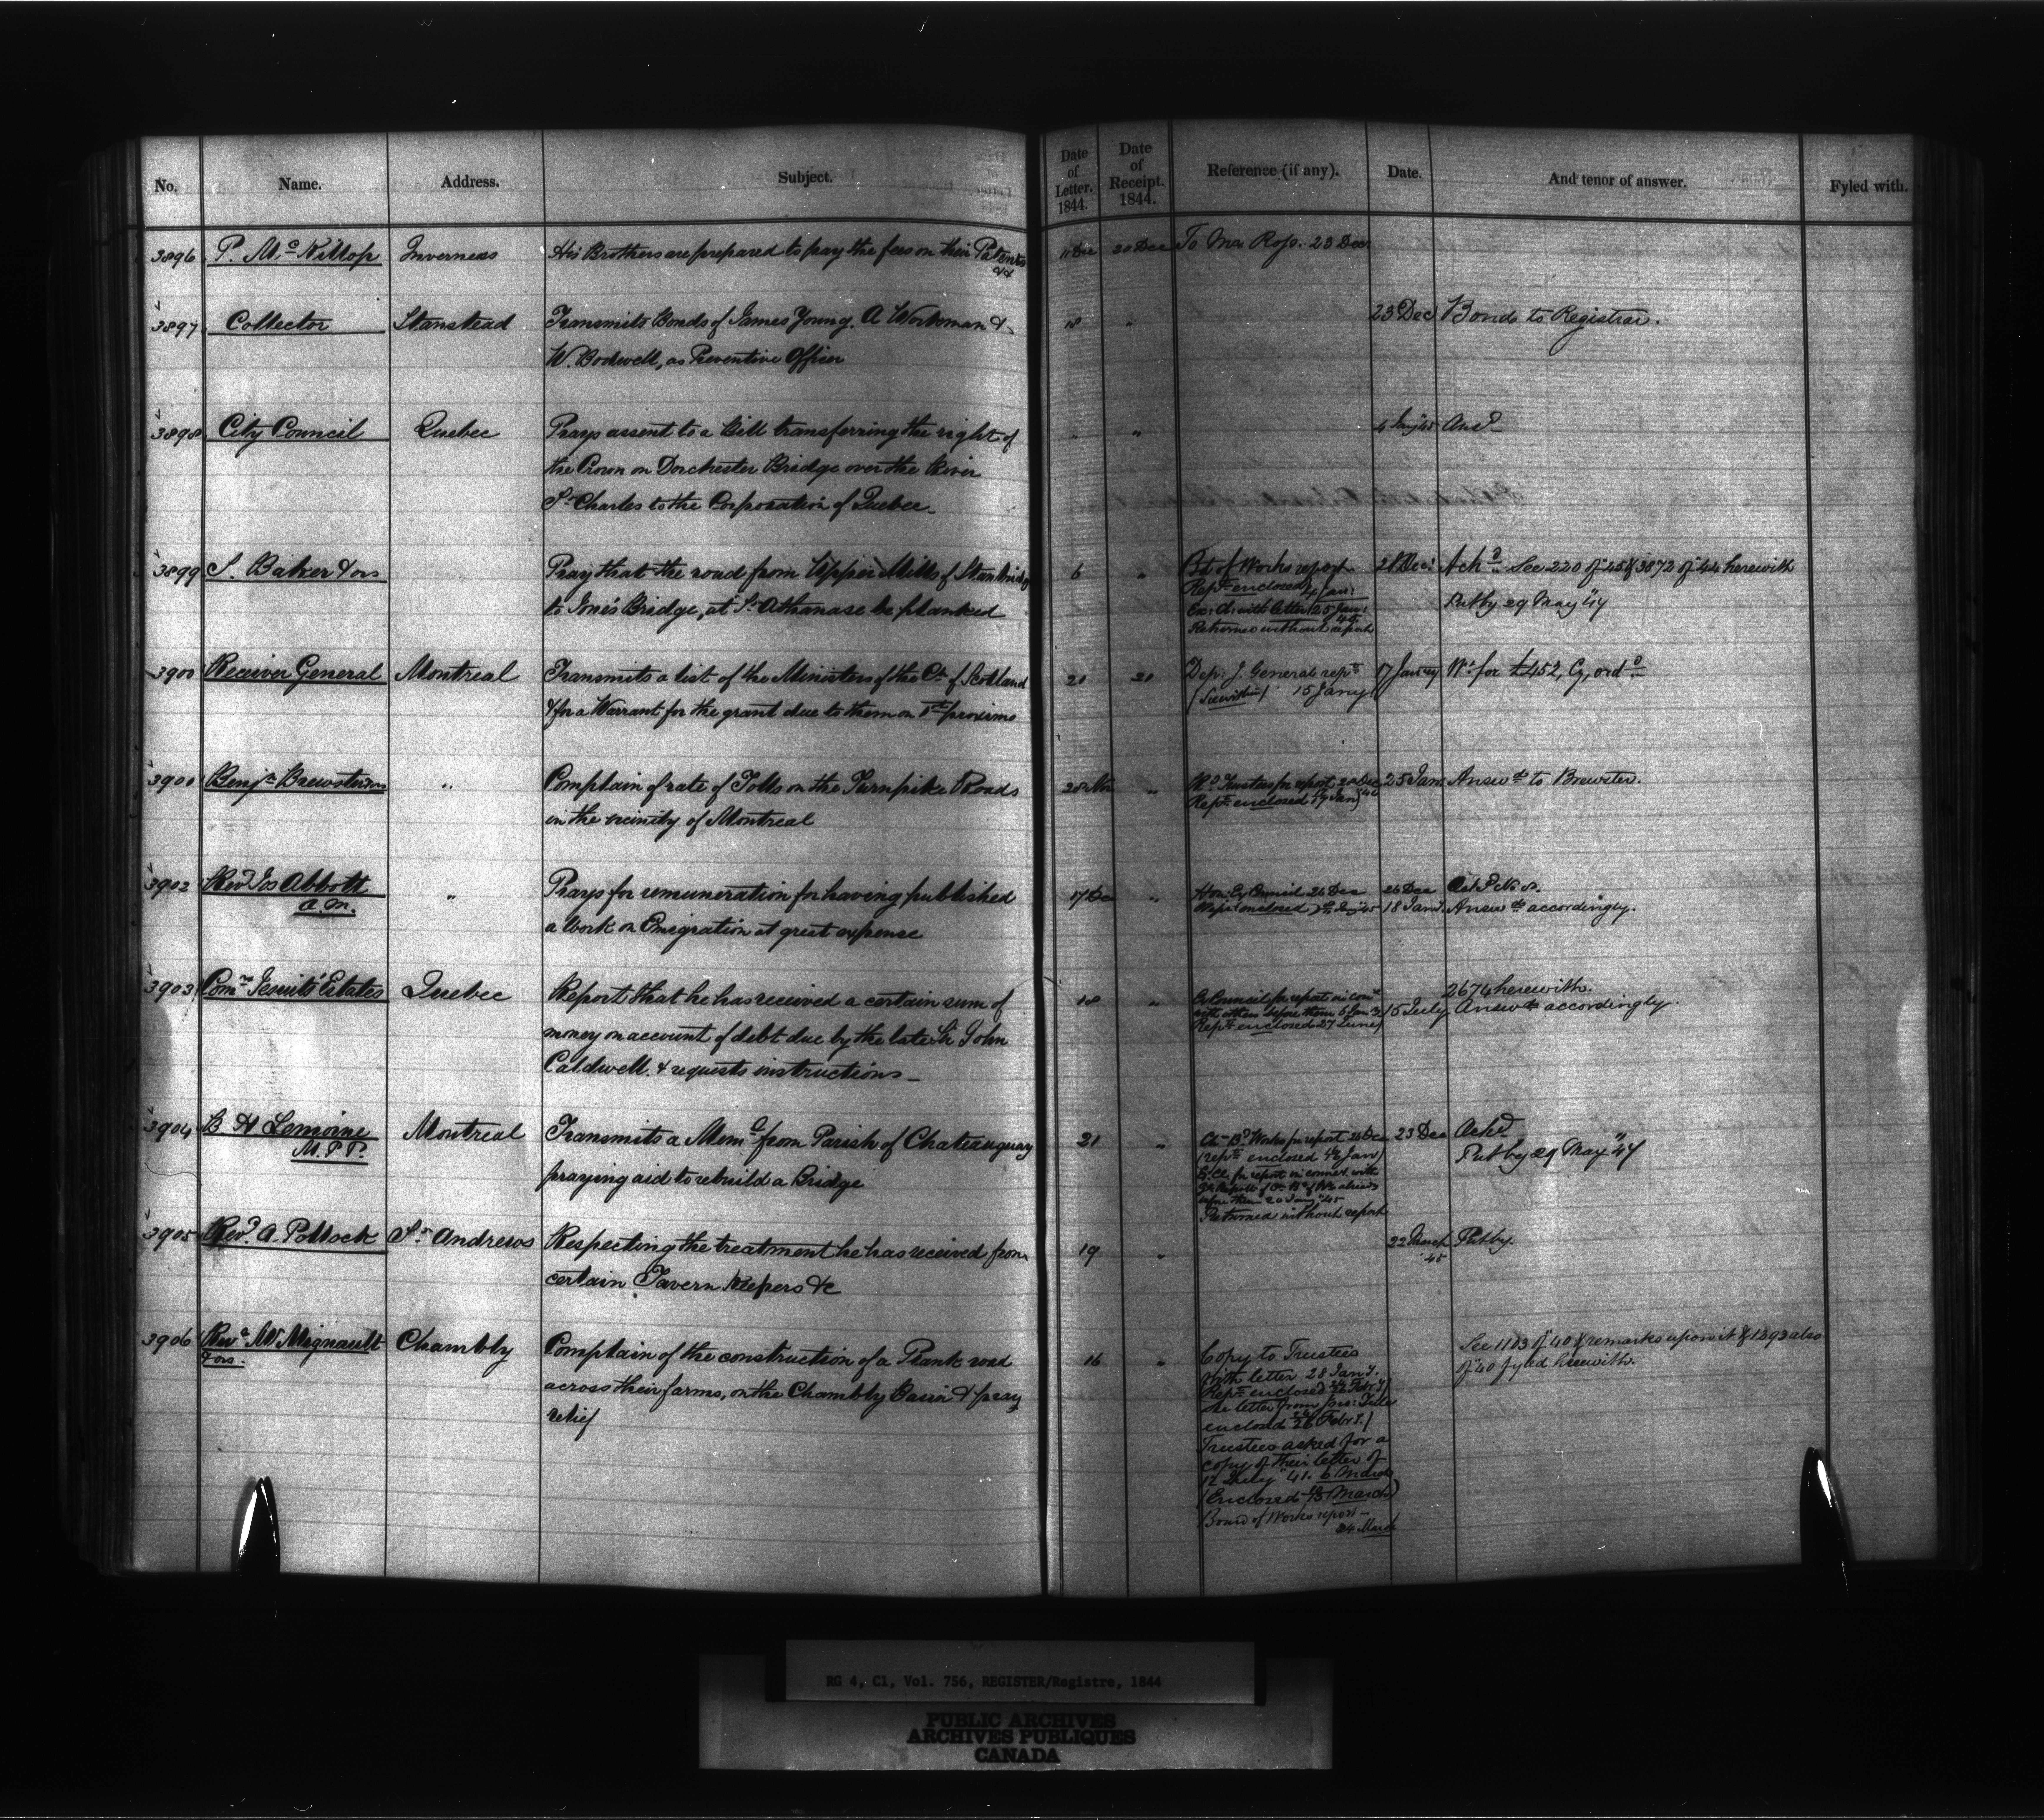 No. Name. Address. Subject. Date of Letter. 1844. Date of Receipt. 1844. Reference (if any). Date. And tenor of answer. Fyled with.
3896 P. McKillop Inverness His Brothers are prepared to pay the fees on their Patents &c 11 Dec 20 Dec To Mr Ross. 23 Dec
3897 Collector Stanstead Transmits Bonds of James Young, A Workman & 18 " 23 Dec Bonds to Registrar.
W. Bodwell, as Preventive Officer
3898 City Council Quebec Prays assent to a Bill transferring the right of " " 4 Jany 45 Ansd
the Crown on Dorchester Bridge over the River
St Charles to the Corporation of Quebec.
3899 S. Baker & ors " Pray that the road from Upper Mills of Stanbridge 6 " Bd of Works report 21 Dec: Ackd See 220 of 45 & 3872 of 44 herewith
to Jone's Bridge, at St Athanase be planked Rept enclosed 4 Jan: Put by 29 May "47
Ex: Cl: with letter 25 Jan:
Returned without report
3900 Receiver General Montreal Transmits a list of the Ministers of the Ch. of Scotland 20 20 Dep: I. General rept 17 Jany Wt for £452, Cy, ordd
& for a Warrant for the grant due to them on 1st proximo (See within) 15 Jany
3901 Benjn Brewster & ors " Complain of rate of Tolls on the Turnpike Roads 28 Nov " Trustees for report 20 Dec 25 Jan Answd to Brewster.
in the vicinity of Montreal Rept enclosed 17 Jan
3902 Revd Jos Abbott " Prays for remuneration for having published 17 Dec " Hon: Ex Council 26 Dec 26 Dec
A.M. a Work on Emigration at great expense Rept enclosed 18 Jany. Answd accordingly.
3903 Comr Jesuits' Estates Quebec Report that he has received a certain sum of 18 " Ex Council for report in conn 2674 herewith.
money on account of debt due by the late Sir John with others before them 15 July Answd accordingly.
Caldwell. & requests instructions Rept enclosed 27 June
3904 B H Lemoine Montreal Transmits a Meml from Parish of Chateauguay 21 " Ch Bd Works for report 23 Dec Ackd
M.P.P. praying aid to rebuild a Bridge (rept enclosed Jan) Put by 29 May "47
Ex. Cl. for report in connect. with
before them 20 Jany "45
Returned without report
3905 Revd A. Pollock St Andrews Respecting the treatment he has received from 19 " 22 March 45 Put by
certain Tavern Keepers &c
3906 Revd Mr Mignault Chambly Complain of the construction of a Plank road 16 " Copy to Trustees See 1103 of "40 & remarks upon it & 1293 also
& ors. across their farms, on the Chambly Basin & pray with letter 28 Jany. of "40 fyled herewith.
relief Rept enclosed
letter from
enclosed 26 Febry.)
Trustees asked for a
copy of their letter of
12 July "41. 6 March
(Enclosed March)
Board of Works report
24 March
RG 4, C1, Vol. 756, REGISTER/Registre, 1844
PUBLIC ARCHIVES
ARCHIVES PUBLIQUES
CANADA